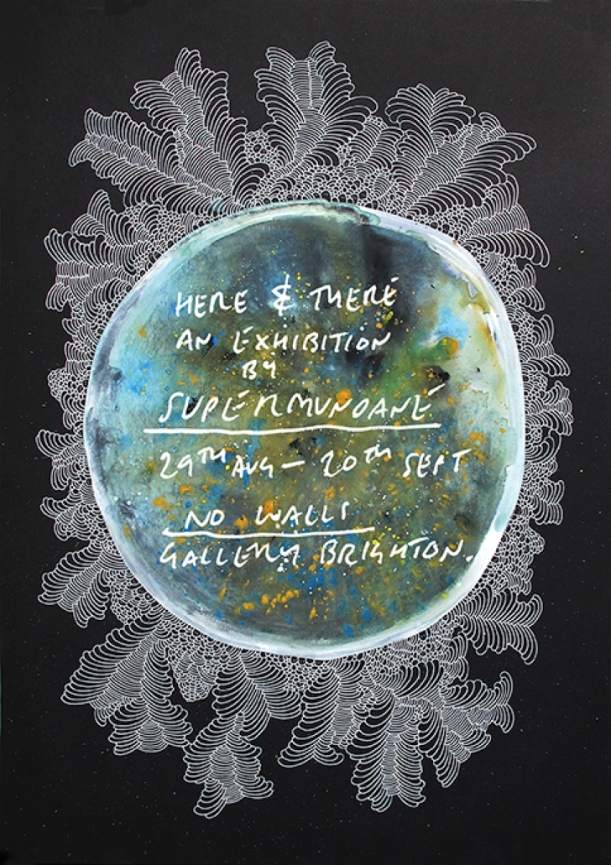 HERE & THERE
AN EXHIBITION
BY
SUPERMUNDANE
29TH AUG – 20TH SEPT
NO WALLS
GALLERY BRIGHTON.